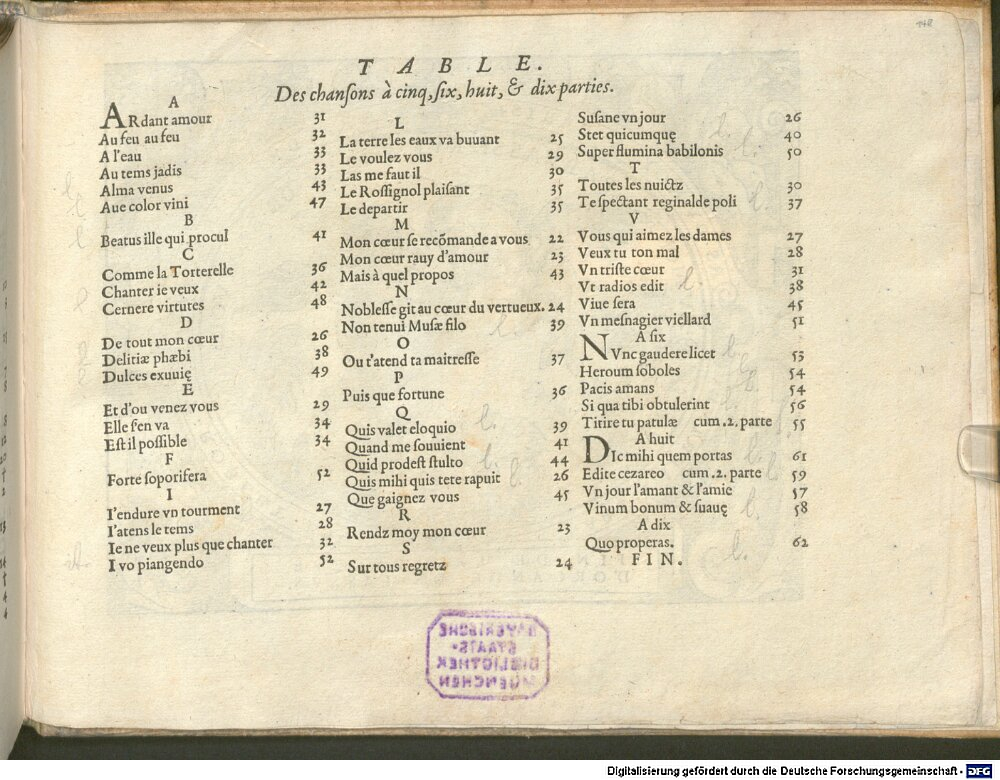 148
TABLE.
Des chanſons à cinq, ſix, huit, & dix parties.
A
ARdant amour 31
Au feu au feu 32
A l'eau 33
Au tems jadis 33
Alma venus 43
Aue color vini 47
B
Beatus ille qui procul 41
C
Comme la Torterelle 36
Chanter ie veux 42
Cernere virtutes 48
D
De tout mon cœur 26
Delitiæ phæbi 38
Dulces exuuię 49
E
Et d'ou venez vous 29
Elle ſ'en va 34
Eſt il poſſible 34
F
Forte ſoporifera 52
I
I'endure vn tourment 27
I'atens le tems 28
Ie ne veux plus que chanter 32
I vo piangendo 52
L
La terre les eaux va buuant 25
Le voulez vous 29
Las me faut il 30
Le Roſſignol plaiſant 35
Le departir 35
M
Mon cœur ſe recõmande a vous 22
Mon cœur rauy d'amour 23
Mais à quel propos 43
N
Nobleſſe git au cœur du vertueux. 24
Non tenui Muſæ filo 39
O
Ou t'atend ta maitreſſe 37
P
Puis que fortune 36
Q
Quis valet eloquio 39
Quand me ſouuient 41
Quid prodeſt ſtulto 44
Quis mihi quis te te rapuit 26
Que gaignez vous 45
R
Rendz moy mon cœur 23
S
Sur tous regretz 24
Suſane vn jour 26
Stet quicumquę 40
Super flumina babilonis 50
T
Toutes les nuictz 30
Te ſpectant reginalde poli 37
V
Vous qui aimez les dames 27
Veux tu ton mal 28
Vn triſte cœur 31
Vt radios edit 38
Viue ſera 45
Vn meſnagier viellard 51
A ſix
NVnc gaudere licet 53
Heroum ſoboles 54
Pacis amans 54
Si qua tibi obtulerint 56
Titire tu patulæ cum .2. parte 55
A huit
DIc mihi quem portas 61
Edite cezareo cum .2. parte 59
Vn jour l'amant & l'amie 57
Vinum bonum & ſuauę 58
A dix
Quo properas. 62
FIN.
BAYERISCHE
STAATS-
BIBLIOTHEK
MUENCHEN
Digitalisierung gefördert durch die Deutsche Forschungsgemeinschaft - DFG